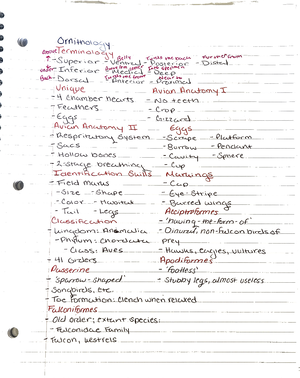 Ornithology
Terminology
above belly
- Superior - Ventral - Posterior - Distal
- Inferior - Medical - Deep
Back - Dorsal - Proximal
Unique Avian Anatomy I
- 4 Chamber Hearts - No teeth
- Feathers - Crop
- Eggs - Gizzard
Avian Anatomy II Eggs
- Respiratory System - Scrape - Platform
- Sacs - Burrow - Pendant
- Hollow bones - Cavity - Sphere
- 2-stage breathing - Cup
Identification Skills Markings
- Field Marks - Cap
- Size - Shape - Eye-Stripe
- Color - Habitat - Barred wings
- Tail - Legs Accipitriformes
Classification - "Having-the-form-of"
- Kingdom: Animalia - Diurnal, non-falcon birds of
- Phylum: Chordata prey
- Class: Aves - Hawks, eagles, vultures
- 41 Orders Apodiformes
Passerine - "footless"
- "Sparrow-shaped" - Stubby legs, almost useless
- Songbirds, etc.
- Toe formation: Clench when relaxed
Falconiformes
- Old order; extant species:
- Falconidae Family
- Falcon, kestrels